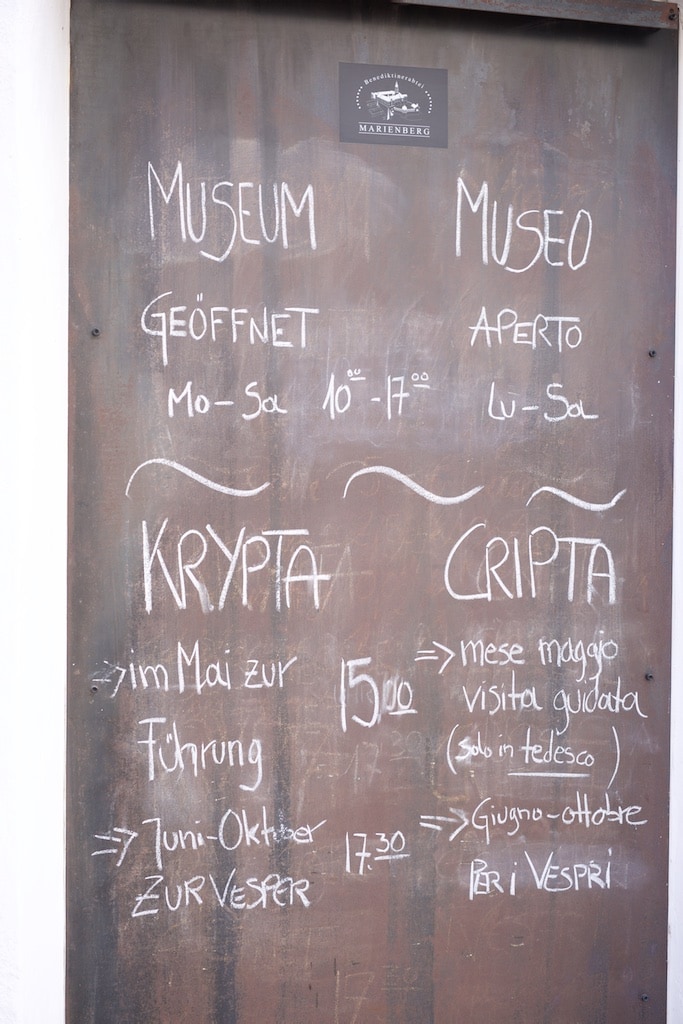 Benediktinerabtei
MARIENBERG
MUSEUM MUSEO
GEÖFFNET APERTO
Mo-Sa 10⁰⁰-17⁰⁰ Lu-Sa
KRYPTA CRIPTA
=> im Mai zur 15.00 => mese maggio
Führung visita guidata
(solo in tedesco)
=> Juni-Oktober 17.30 => Giugno-ottobre
ZUR VESPER PER i VESPRI